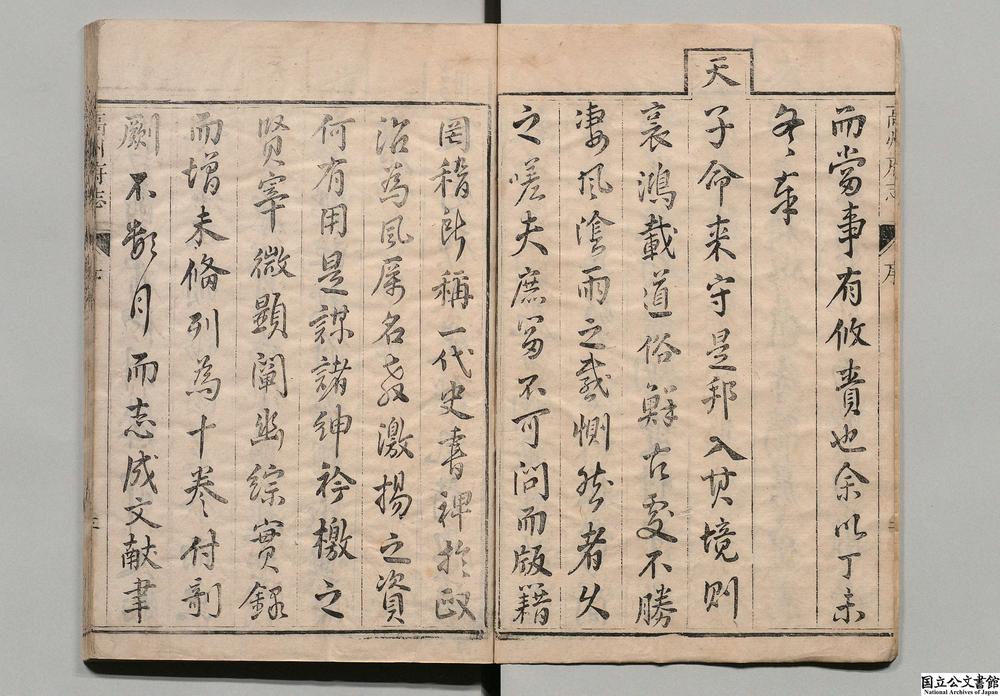 高州府志 序
而當事有攸責也余以丁未
冬奉
天子命来守是邦入其境則
哀鴻載道俗鮮古處不勝
凄風陰雨之慼惻然者久
之嗟夫庶富不可問而版籍
罔稽所稱一代史書裨於政
治為風厲名教激揚之資
何有用是謀諸紳衿檄之
賢宰微顯闡幽綜實録
而增未備列為十卷付剞
劂不數月而志成文献聿
高州府志 序
国立公文書館
National Archives of Japan